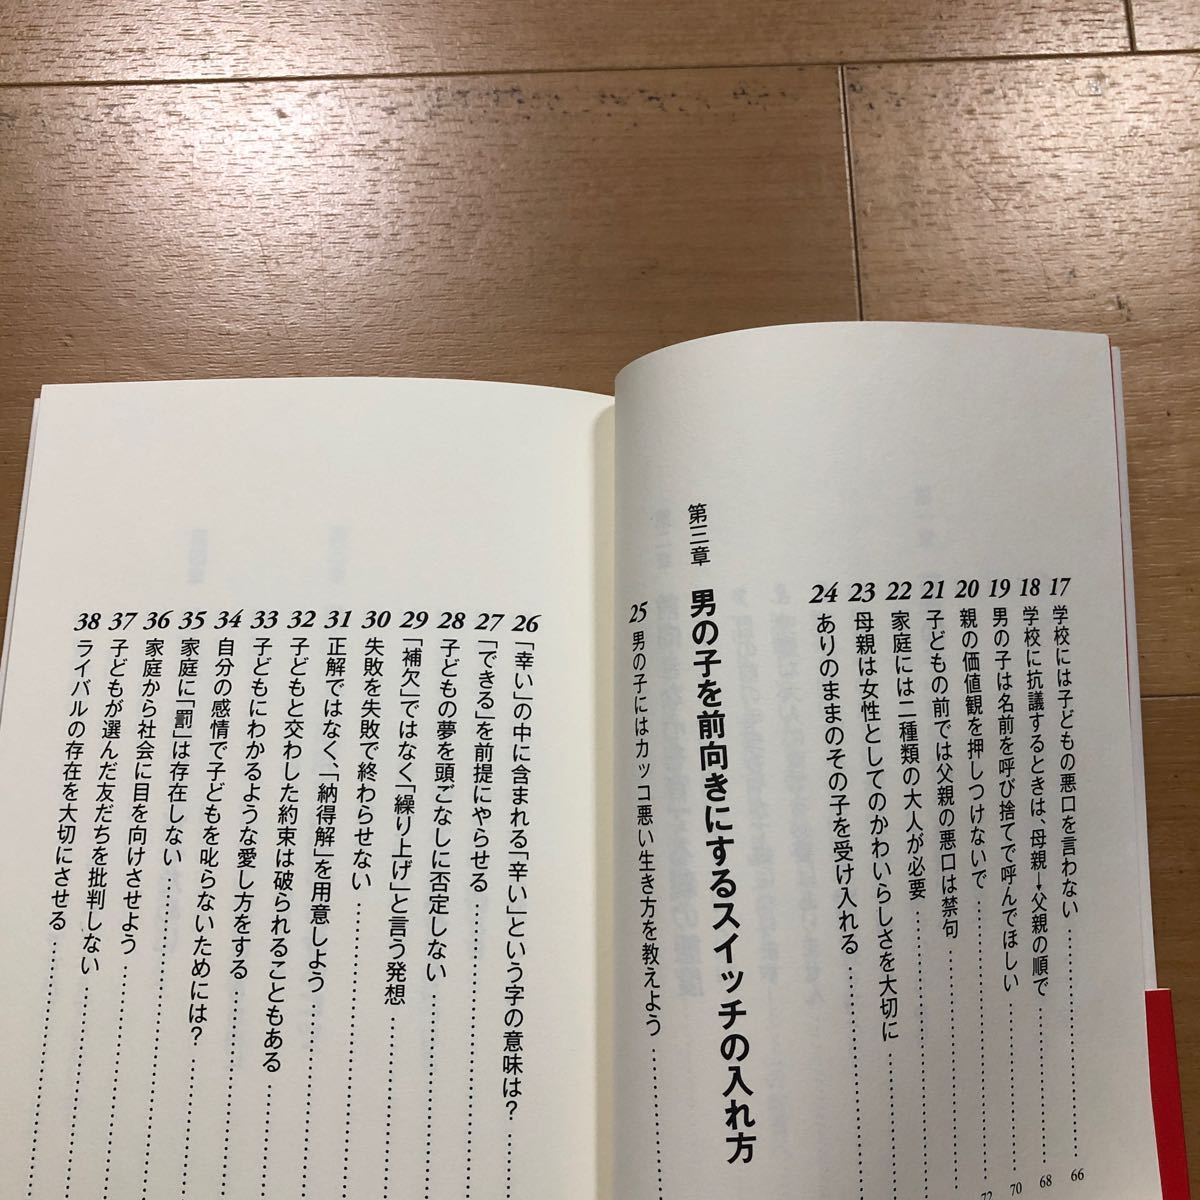 17 学校には子どもの悪口を言わない………… 66
18 学校に抗議するときは、母親→父親の順で………… 68
19 男の子は名前を呼び捨てで呼んでほしい………… 70
20 親の価値観を押しつけないで………… 72
21 子どもの前では父親の悪口は禁句…………
22 家庭には二種類の大人が必要…………
23 母親は女性としてのかわいらしさを大切に…………
24 ありのままのその子を受け入れる…………
第三章 男の子を前向きにするスイッチの入れ方
25 男の子にはカッコ悪い生き方を教えよう…………
26 「幸い」の中に含まれる「辛い」という字の意味は?…………
27 「できる」を前提にやらせる…………
28 子どもの夢を頭ごなしに否定しない…………
29 「補欠」ではなく「繰り上げ」と言う発想…………
30 失敗を失敗で終わらせない…………
31 正解ではなく、「納得解」を用意しよう…………
32 子どもと交わした約束は破られることもある…………
33 子どもにわかるような愛し方をする…………
34 自分の感情で子どもを叱らないためには?…………
35 家庭に「罰」は存在しない…………
36 家庭から社会に目を向けさせよう…………
37 子どもが選んだ友だちを批判しない…………
38 ライバルの存在を大切にさせる…………